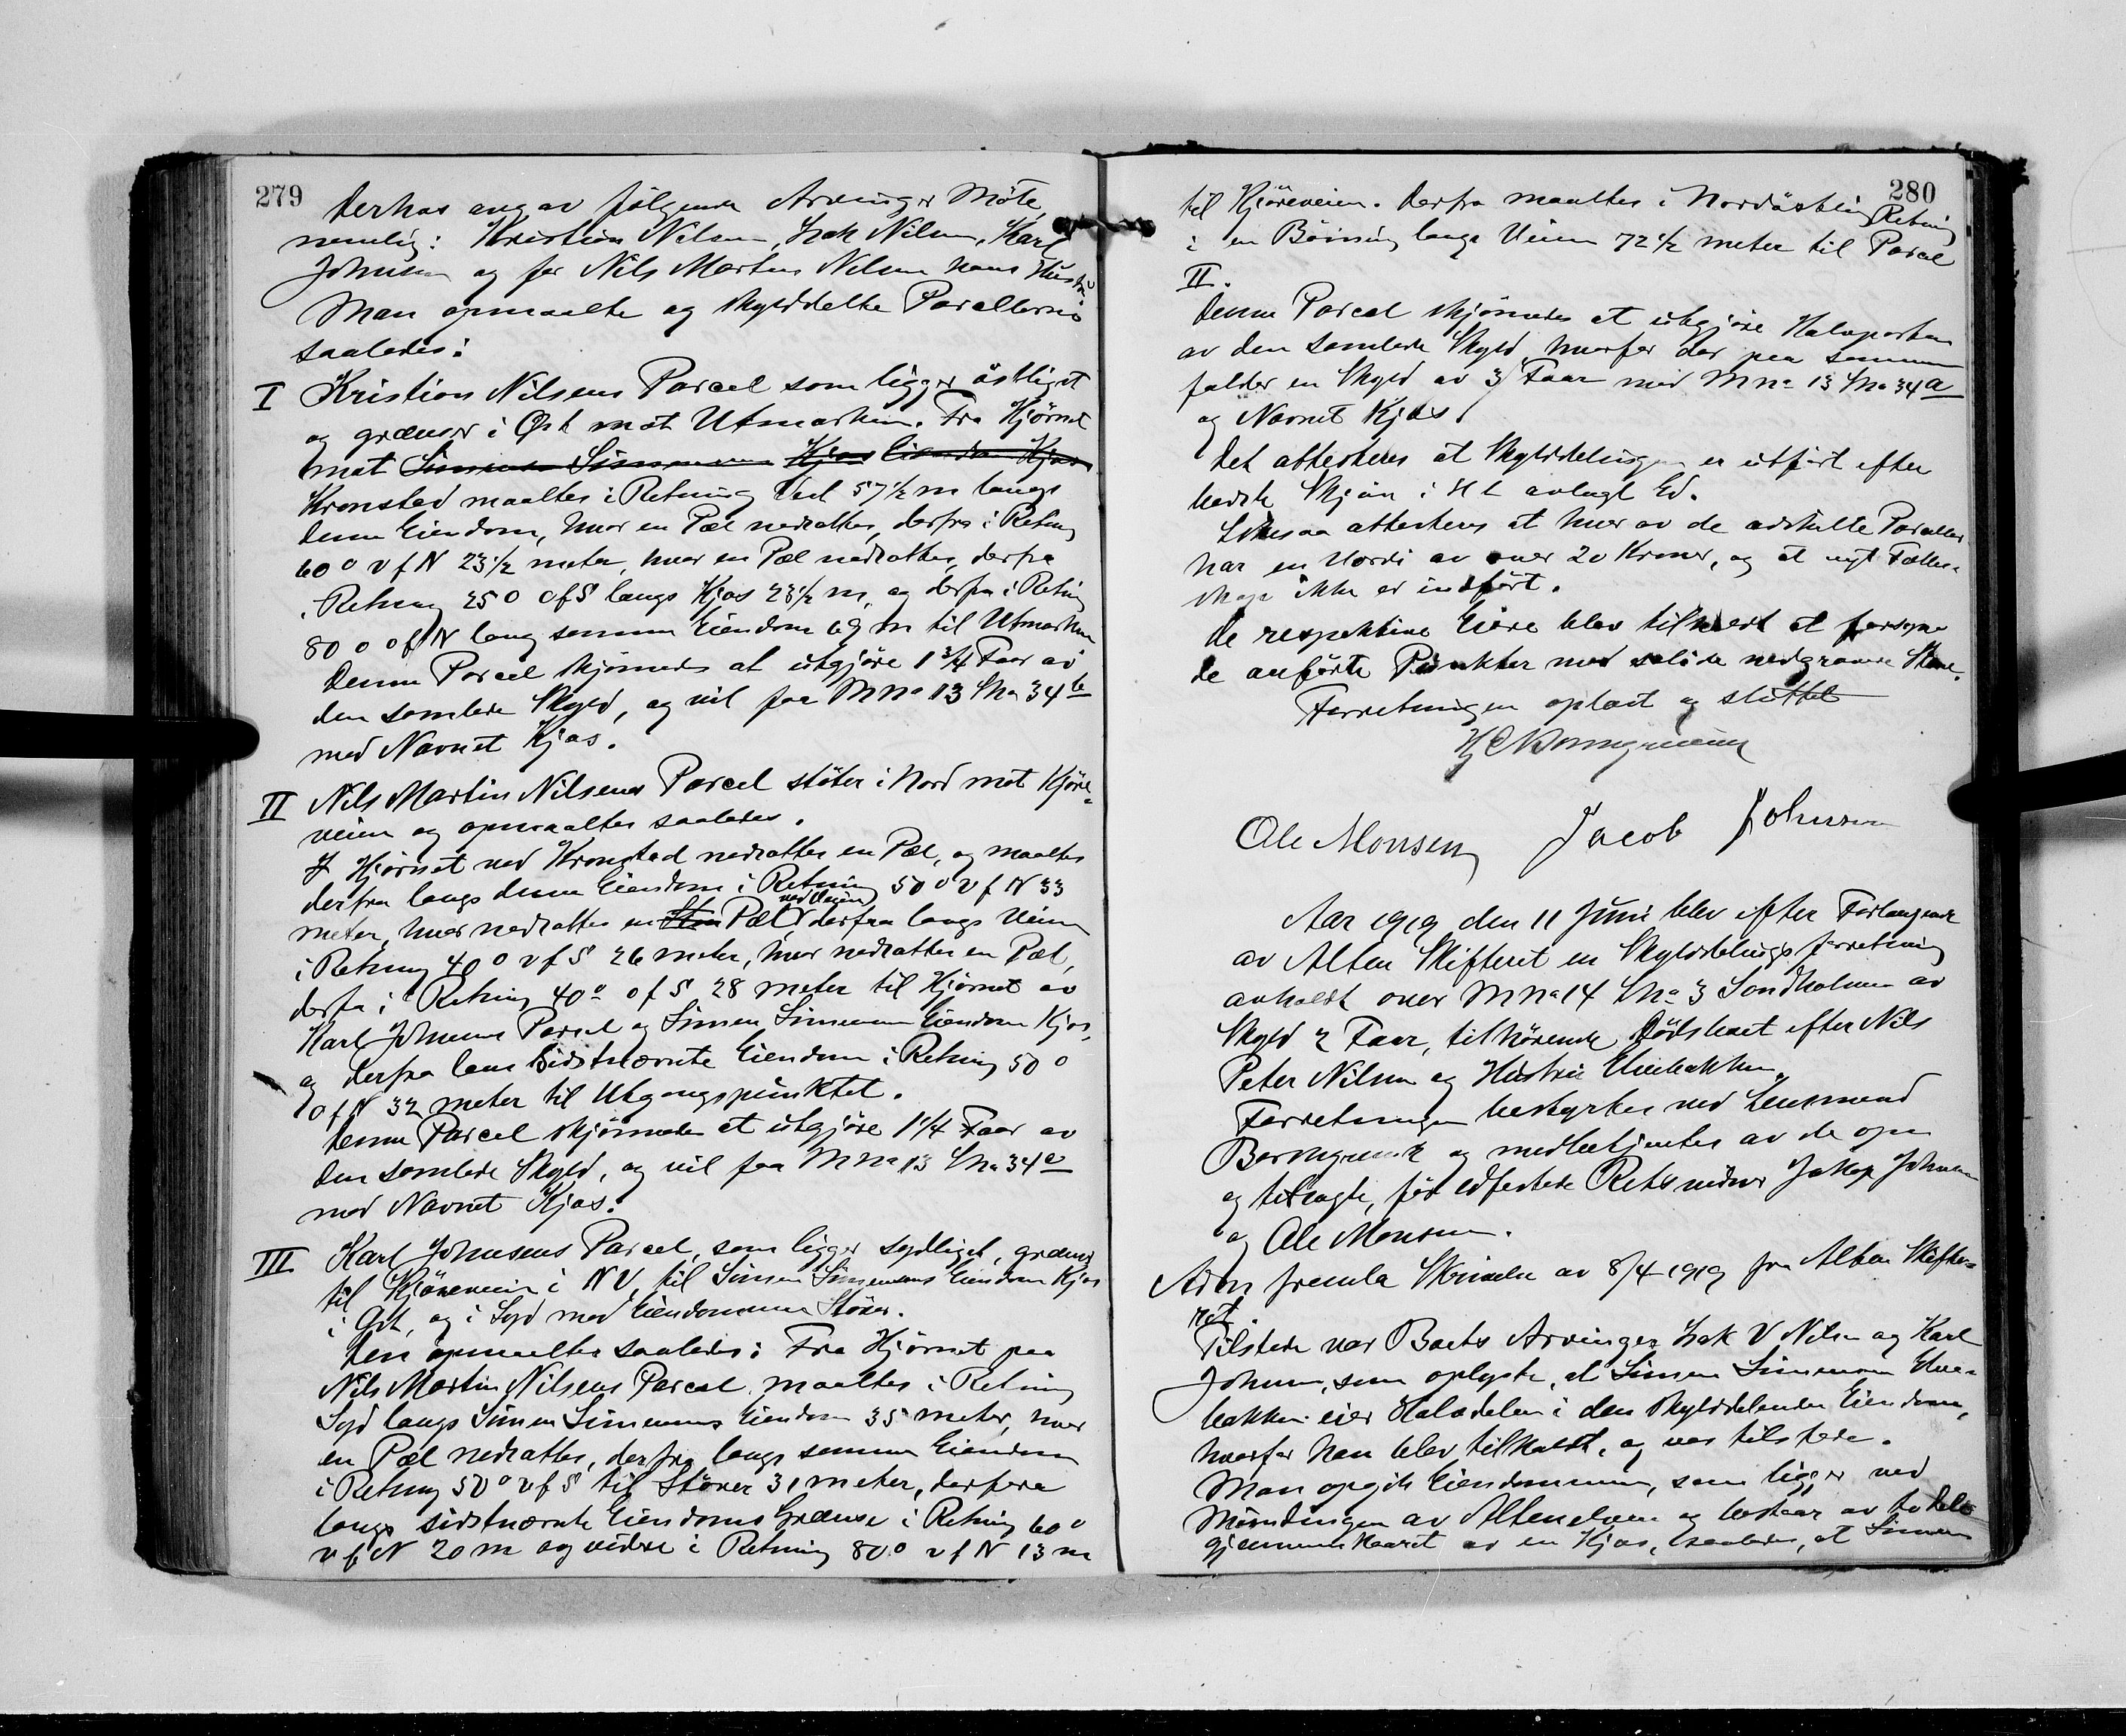 279
Derhos angav følgende Arvinger Møte,
nemlig: Kristian Nilsen, Isak Nilsen, Karl
Johnsen og for Nils Martin Nilsen hans Hustru
Man opmaalte og skylddelte Parcellerne
saaledes:
I Kristian Nilsens Parcel som ligger östligst
og grænser i Øst mot Utmarken. Fra Hjørnet
mot Simen Simensens Kjos Eiendom Kjos
Kronstad maaltes i Retning Vest 57 1/2 m langs
denne Eiendom, hvor en Pæl nedsattes, derfra i Retning
60° v f N 23 1/2 meter, hvor en Pæl nedsattes, derfra
i Retning 25° o f S langs Kjos 23 1/2 m, og derfra i Retning
80° o f N lang samme Eiendom 69 m til Utmarken
Denne Parcel skjönnedes at utgjöre 1 3/4 Faar av
den samlede Skyld, og vil faa M No 13 L No 34 b
med Navnet Kjos.
II Nils Martin Nilsens Parcel stöter i Nord mot Kjöre-
veien og opmaaltes saaledes.
I Hjörnet ved Kronstad nedsattes en Pæl, og maaltes
derfra langs denne Eiendom i Retning 50° v f N 33
meter, hvor nedsattes en Sten Pæl ved Veien derfra langs Veien
i Retning 40° v f S 26 meter, hvor nedsattes en Pæl,
derfra i Retning 40° o f S 28 meter til Hjørnet av
Karl Johnsens Parcel og Simen Simensens Eiendom Kjos,
og derfra langs sidstnævnte Eiendom i Retning 50°
o f N 32 meter til Utgangspunktet.
Denne Parcel skjönnedes at utgjöre 1 1/4 Faar av
den samlede Skyld, og vil faa M No 13 L No 34
med Navnet Kjos.
III Karl Johnsens Parcel, som ligger sydligst, grænser
til Kjöreveien i NV, til Simen Simensens Eiendom Kjos
i Öst, og i Syd med Eiendommen Stöver.
Den opmaaltes saaledes: Fra Hjørnet paa
Nils Martin Nilsens Parcel maaltes i Retning
Syd langs Simen Simensens Eiendom 35 meter, hvor
en Pæl nedsattes, derfra langs samme Eiendom
i Retning 50° v f S til Stöver 31 meter, derfra
langs sidstnævnte Eiendoms Grænse i Retning 60°
v f N 20 m og videre i Retning 80° v f N 13 m
280
til Kjöreveien. Derfra maaltes i Nordöstlig Retning
i en Böining langs Veien 72 1/2 meter til Parcel
II.
Denne Parcel skjönnedes at utgjöre Halvparten
av den samlede Skyld, hvorfor der paa samme
falder en Skyld av 3 Faar med M No 13 L No 34 a
og Navnet Kjos.
Det attesteres at Skylddelingen er utfört efter
bedste Skjön i H t avlagt Ed.
Likesaa attesteres at hver av de adskilte Parceller
har en Værdi av over 20 Kroner, og at nyt Fælles-
skap ikke er indfört.
De respektive Eiere blev tilholdt at forsyne
de anförte Punkter med solide nedgravede Stene.
Forretningen oplæst og sluttet
Ole Monsen Jacob Johnsen
Aar 1919 den 11 Juni blev efter Forlangende
av Alten Skifteret en Skylddelingsforretning
avholdt over M No 14 L No 3 Sandholmen av
Skyld 2 Faar, tilhörende Dödsboet efter Nils
Peter Nilsen og Hustru Elvebakken.
Forretningen bestyrtes ved Lensmand
og medbetjentes av de opn
og tilsagte, för edfestede Retsvidner Jakop Johnsen
og Ole Monsen.
Adm fremla Skrivelse av 8/4 1919 fra Alten Skifte-
ret
Tilstede var Boets Arvinger Isak V Nilsen og Karl
Johnsen, som oplyste, at Simen Simensen Elve-
bakken eier Halvdelen i den skylddelende Eiendom,
hvorfor han blev tilkaldt, og var tilstede.
Man opgik Eiendommen, som ligger ved
Mundingen av Altenelven og bestaar av to Dele
gjennemskaaret av en Kjos, saaledes, at Simen